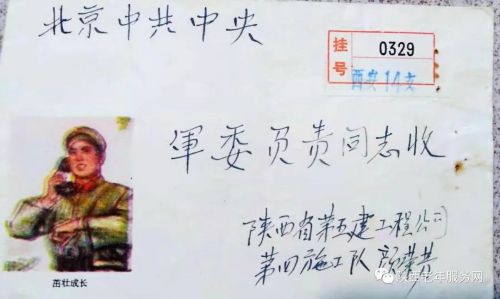 北京中共中央
挂号 0329
西安14支
軍委员责同志收
陕西省第五建工程公司
第四施工队
茁壮成长
陕西老年服务网